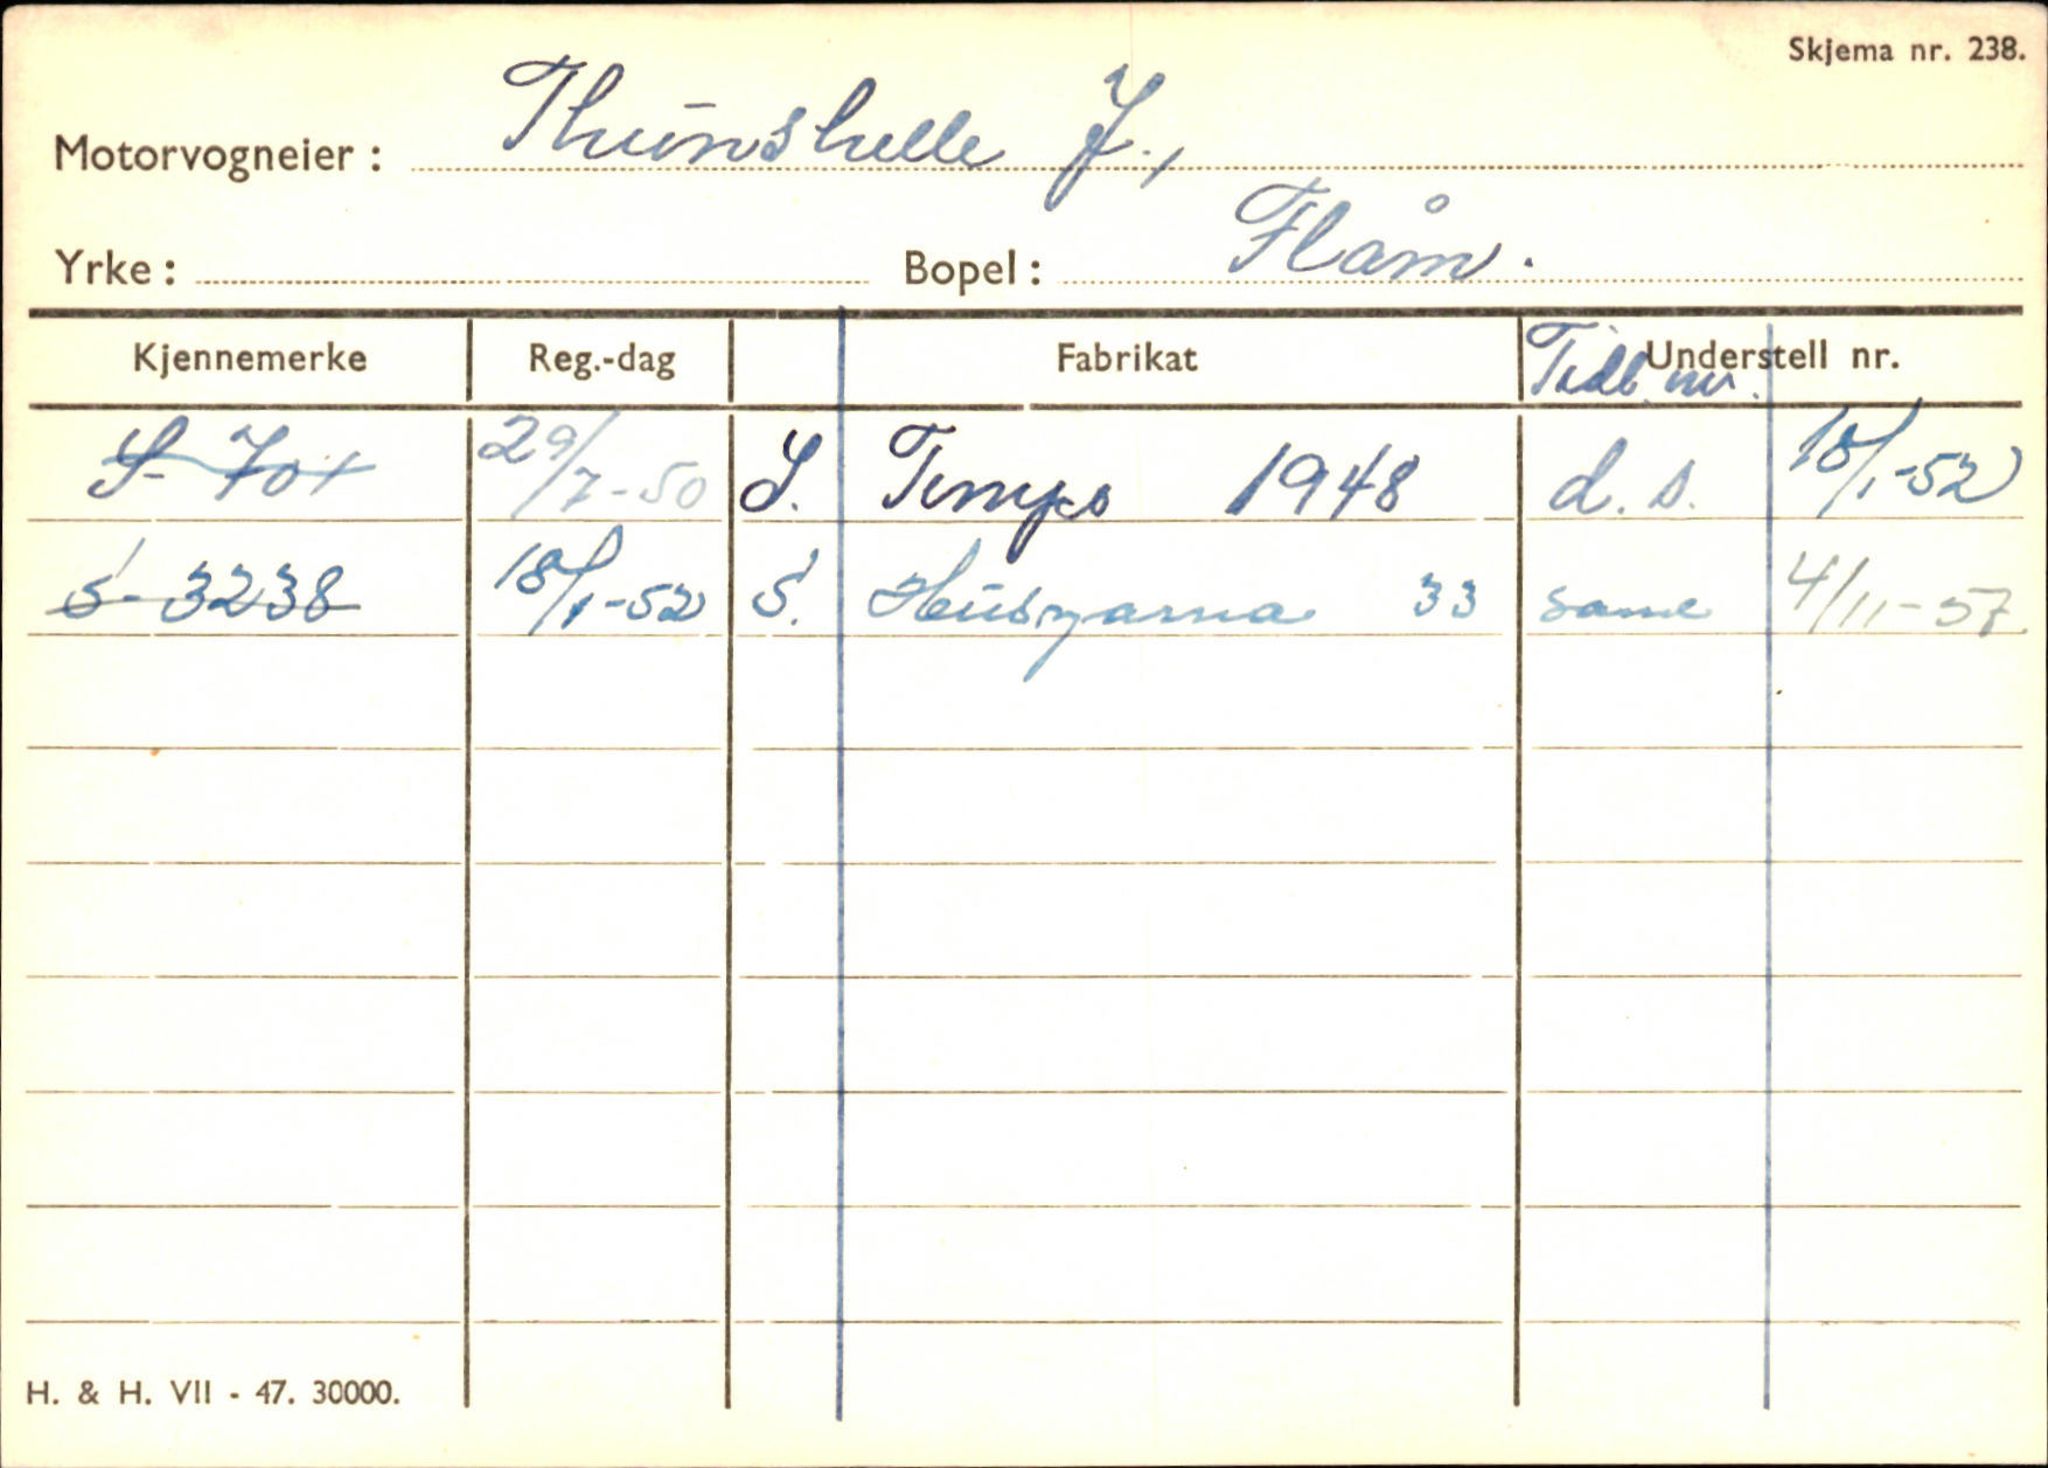 Skjema nr. 238.
Motorvogneier: Thunshelle J.,
Yrke: Bopel: Flåm.
Kjennemerke Reg.-dag Fabrikat Tidl. nr. Understell nr.
S-701 29/7-50 S. Tempo 1948 d.s. 18/1-52
S-3238 18/1-52 S. Husqvarna 33 same 4/11-57
H. & H. VII - 47. 30000.